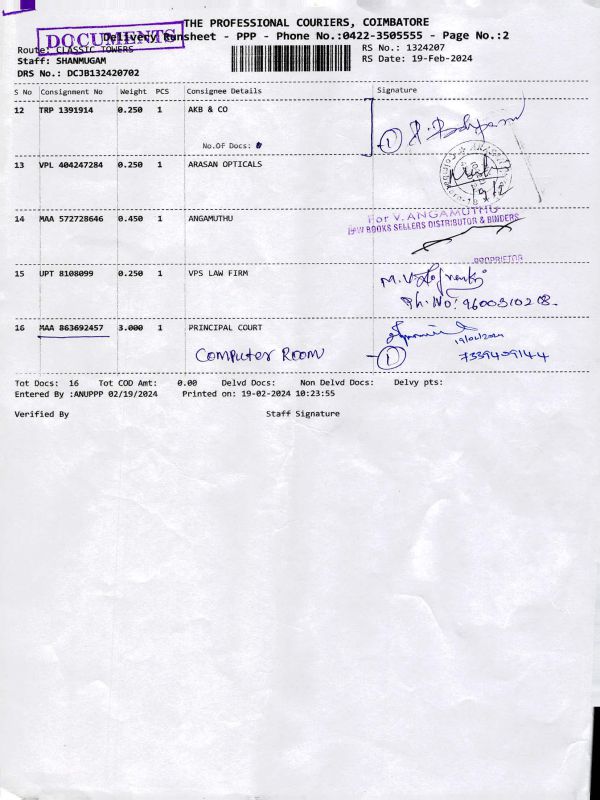 THE PROFESSIONAL COURIERS, COIMBATORE
DOCUMENTS
Delivery Runsheet - PPP - Phone No.:0422-3505555 - Page No.:2
Route: CLASSIC TOWERS
RS No.: 1324207
Staff: SHANMUGAM
RS Date: 19-Feb-2024
DRS No.: DCJB132420702
S No Consignment No Weight PCS Consignee Details Signature
12 TRP 1391914 0.250 1 AKB & CO
No.Of Docs:
1
13 VPL 404247284 0.250 1 ARASAN OPTICALS
19/2
14 MAA 572728646 0.450 1 ANGAMUTHU
For V. ANGAMUTHU
LAW BOOKS SELLERS DISTRIBUTOR & BINDERS
PROPRIETOR
15 UPT 8108099 0.250 1 VPS LAW FIRM
Ph. No: 9600310208.
16 MAA 863692457 3.000 1 PRINCIPAL COURT
19/02/2024
COMPUTER ROOM
1
7339409144
Tot Docs: 16 Tot COD Amt: 0.00 Delvd Docs: Non Delvd Docs: Delvy pts:
Entered By :ANUPPP 02/19/2024 Printed on: 19-02-2024 10:23:55
Verified By Staff Signature